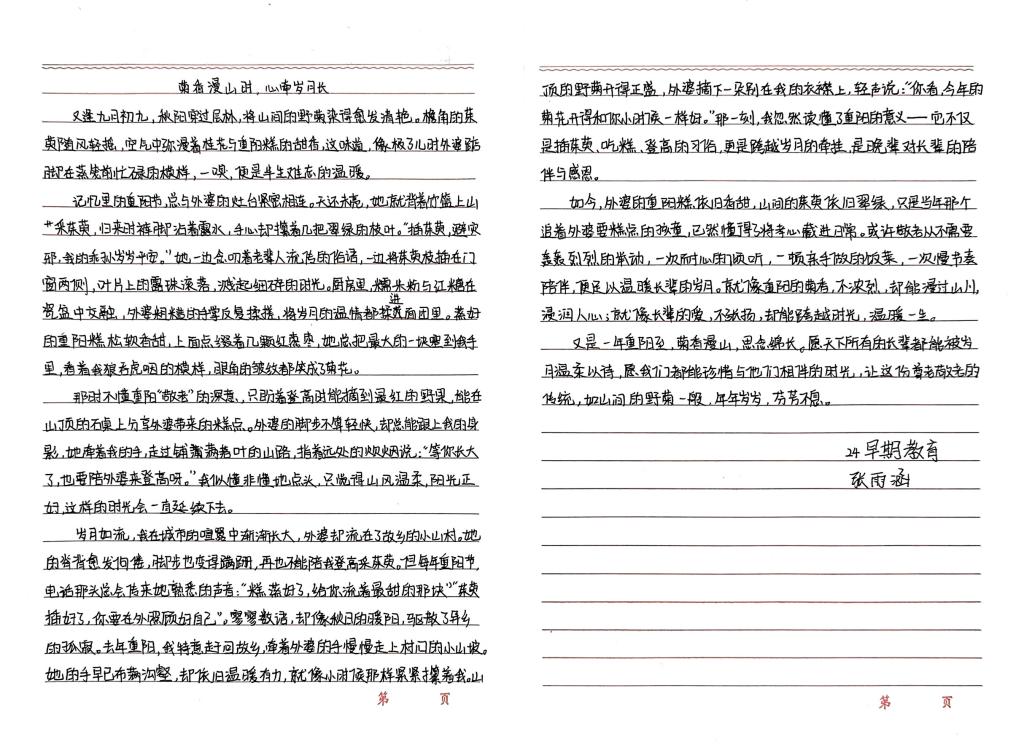 菊香漫山时，心牵岁月长
又逢九月初九，秋阳穿过层林，将山间的野菊染得愈发清艳。檐角的茱
萸随风轻摇，空气中弥漫着桂花与重阳糕的甜香，这味道，像极了儿时外婆踮
脚在蒸笼前忙碌的模样，一嗅，便是半生难忘的温暖。
记忆里的重阳节，总与外婆的灶台紧密相连。天还未亮，她就背着竹篮上山
采茱萸，归来时裤脚沾着露水，手心却攥着几把翠绿的枝叶。“插茱萸，避灾
邪，我的乖孙岁岁平安。”她一边念叨着老辈人流传的俗语，一边将茱萸枝插在门
窗两侧，叶片上的露珠滚落，溅起细碎的时光。厨房里，糯米粉与红糖在
瓷盆中交融，外婆粗糙的手掌反复揉搓，将岁月的温情都揉进面团里。蒸好
的重阳糕松软香甜，上面点缀着几颗红枣，她总把最大的一块塞到我手
里，看着我狼吞虎咽的模样，眼角的皱纹都笑成了菊花。
那时不懂重阳“敬老”的深意，只盼着登高时能摘到最红的野果，能在
山顶的石桌上分享外婆带来的糕点。外婆的脚步不算轻快，却总能跟上我的身
影，她牵着我的手，走过铺满落叶的山路，指着远处的炊烟说：“等你长大
了，也要陪外婆来登高呀。”我似懂非懂地点头，只觉得山风温柔，阳光正
好，这样的时光会一直延续下去。
岁月如流，我在城市的喧嚣中渐渐长大，外婆却留在了故乡的小山村。她
的脊背愈发佝偻，脚步也变得蹒跚，再也不能陪我登高采茱萸。但每年重阳节，
电话那头总会传来她熟悉的声音：“糕蒸好了，给你留着最甜的那块”“茱萸
插好了，你要在外照顾好自己”。寥寥数语，却像秋日的暖阳，驱散了异乡
的孤寂。去年重阳，我特意赶回故乡，牵着外婆的手慢慢走上村口的小山坡。
她的手早已布满沟壑，却依旧温暖有力，就像小时候那样紧紧攥着我。山
顶的野菊开得正盛，外婆摘下一朵别在我的衣襟上，轻声说：“你看，今年的
菊花开得和你小时候一样好。”那一刻，我忽然读懂了重阳的意义——它不仅
是插茱萸、吃糕、登高的习俗，更是跨越岁月的牵挂，是晚辈对长辈的陪
伴与感恩。
如今，外婆的重阳糕依旧香甜，山间的茱萸依旧翠绿，只是当年那个
追着外婆要糕点的孩童，已然懂得了将孝心藏进日常。或许敬老从不需要
轰轰烈烈的举动，一次耐心的倾听，一顿亲手做的饭菜，一次慢节奏
陪伴，便足以温暖长辈的岁月。就像重阳的菊香，不浓烈，却能漫过山川，
浸润人心；就像长辈的爱，不张扬，却能跨越时光，温暖一生。
又是一年重阳至，菊香漫山，思念绵长。愿天下所有的长辈都能被岁
月温柔以待，愿我们都能珍惜与他们相伴的时光，让这份尊老敬老的
传统，如山间的野菊一般，年年岁岁，芬芳不息。
24早期教育
张雨涵
第 页
第 页